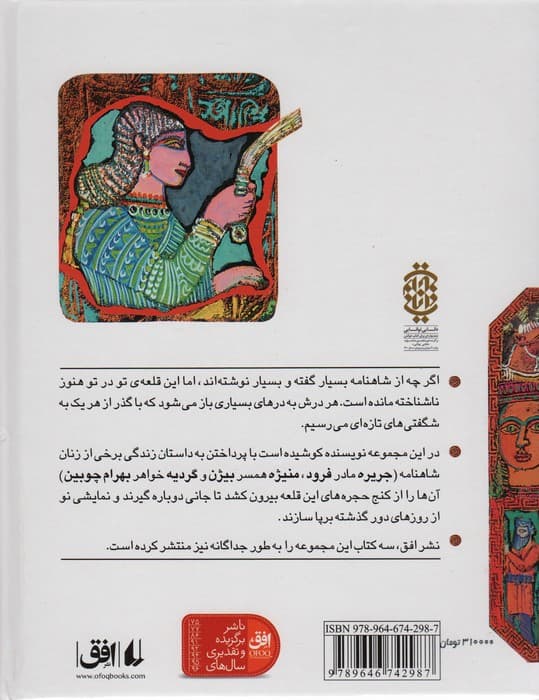 دانایی توانایی
اگر چه از شاهنامه بسیار گفته و بسیار نوشته‌اند، اما این قلعه‌ی تو در تو هنوز
ناشناخته مانده است. هر درش به درهای بسیاری باز می‌شود که با گذر از هر یک به
شگفتی‌های تازه‌ای می‌رسیم.
در این مجموعه نویسنده کوشیده است با پرداختن به داستان زندگی برخی از زنان
شاهنامه (جریره مادر فرود، منیژه همسر بیژن و گردیه خواهر بهرام چوبین)
آن‌ها را از کنج حجره‌های این قلعه بیرون کشد تا جانی دوباره گیرند و نمایشی نو
از روزهای دور گذشته برپا سازند.
نشر افق، سه کتاب این مجموعه را به طور جداگانه نیز منتشر کرده است.
افق
www.ofoqbooks.com
ناشر
برگزیده
و تقدیری
سال‌های
افق
OFOQ
ISBN 978-964-674-298-7
9789646742987
۳۱۰۰۰۰ تومان